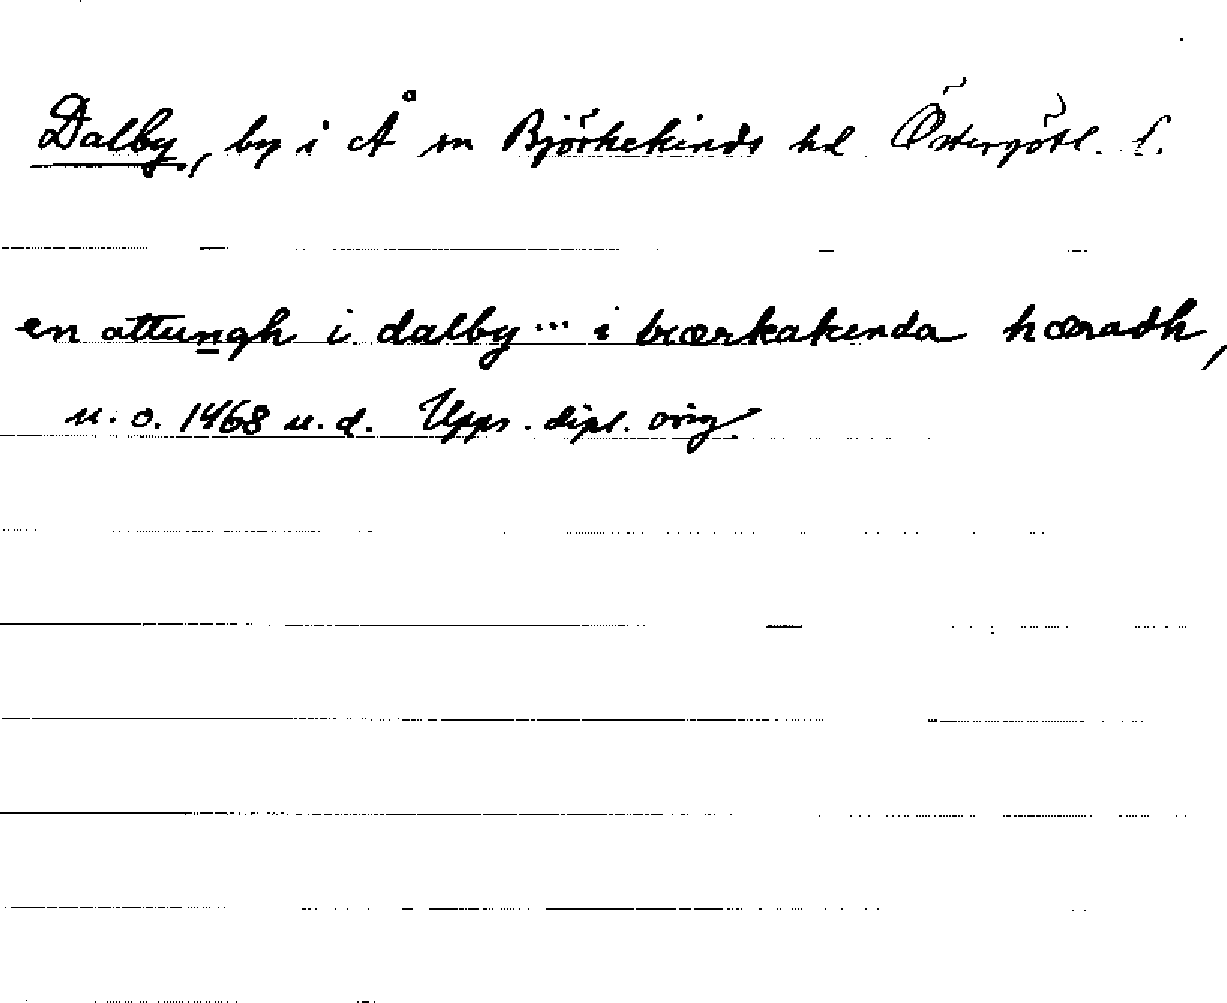 Dalby, by i Å sn Björkekinds hd Östergötl. l.
en attungh i dalby ... i biærkakinda hæradh,
u. o. 1468 u. d. Upps. dipl. orig.